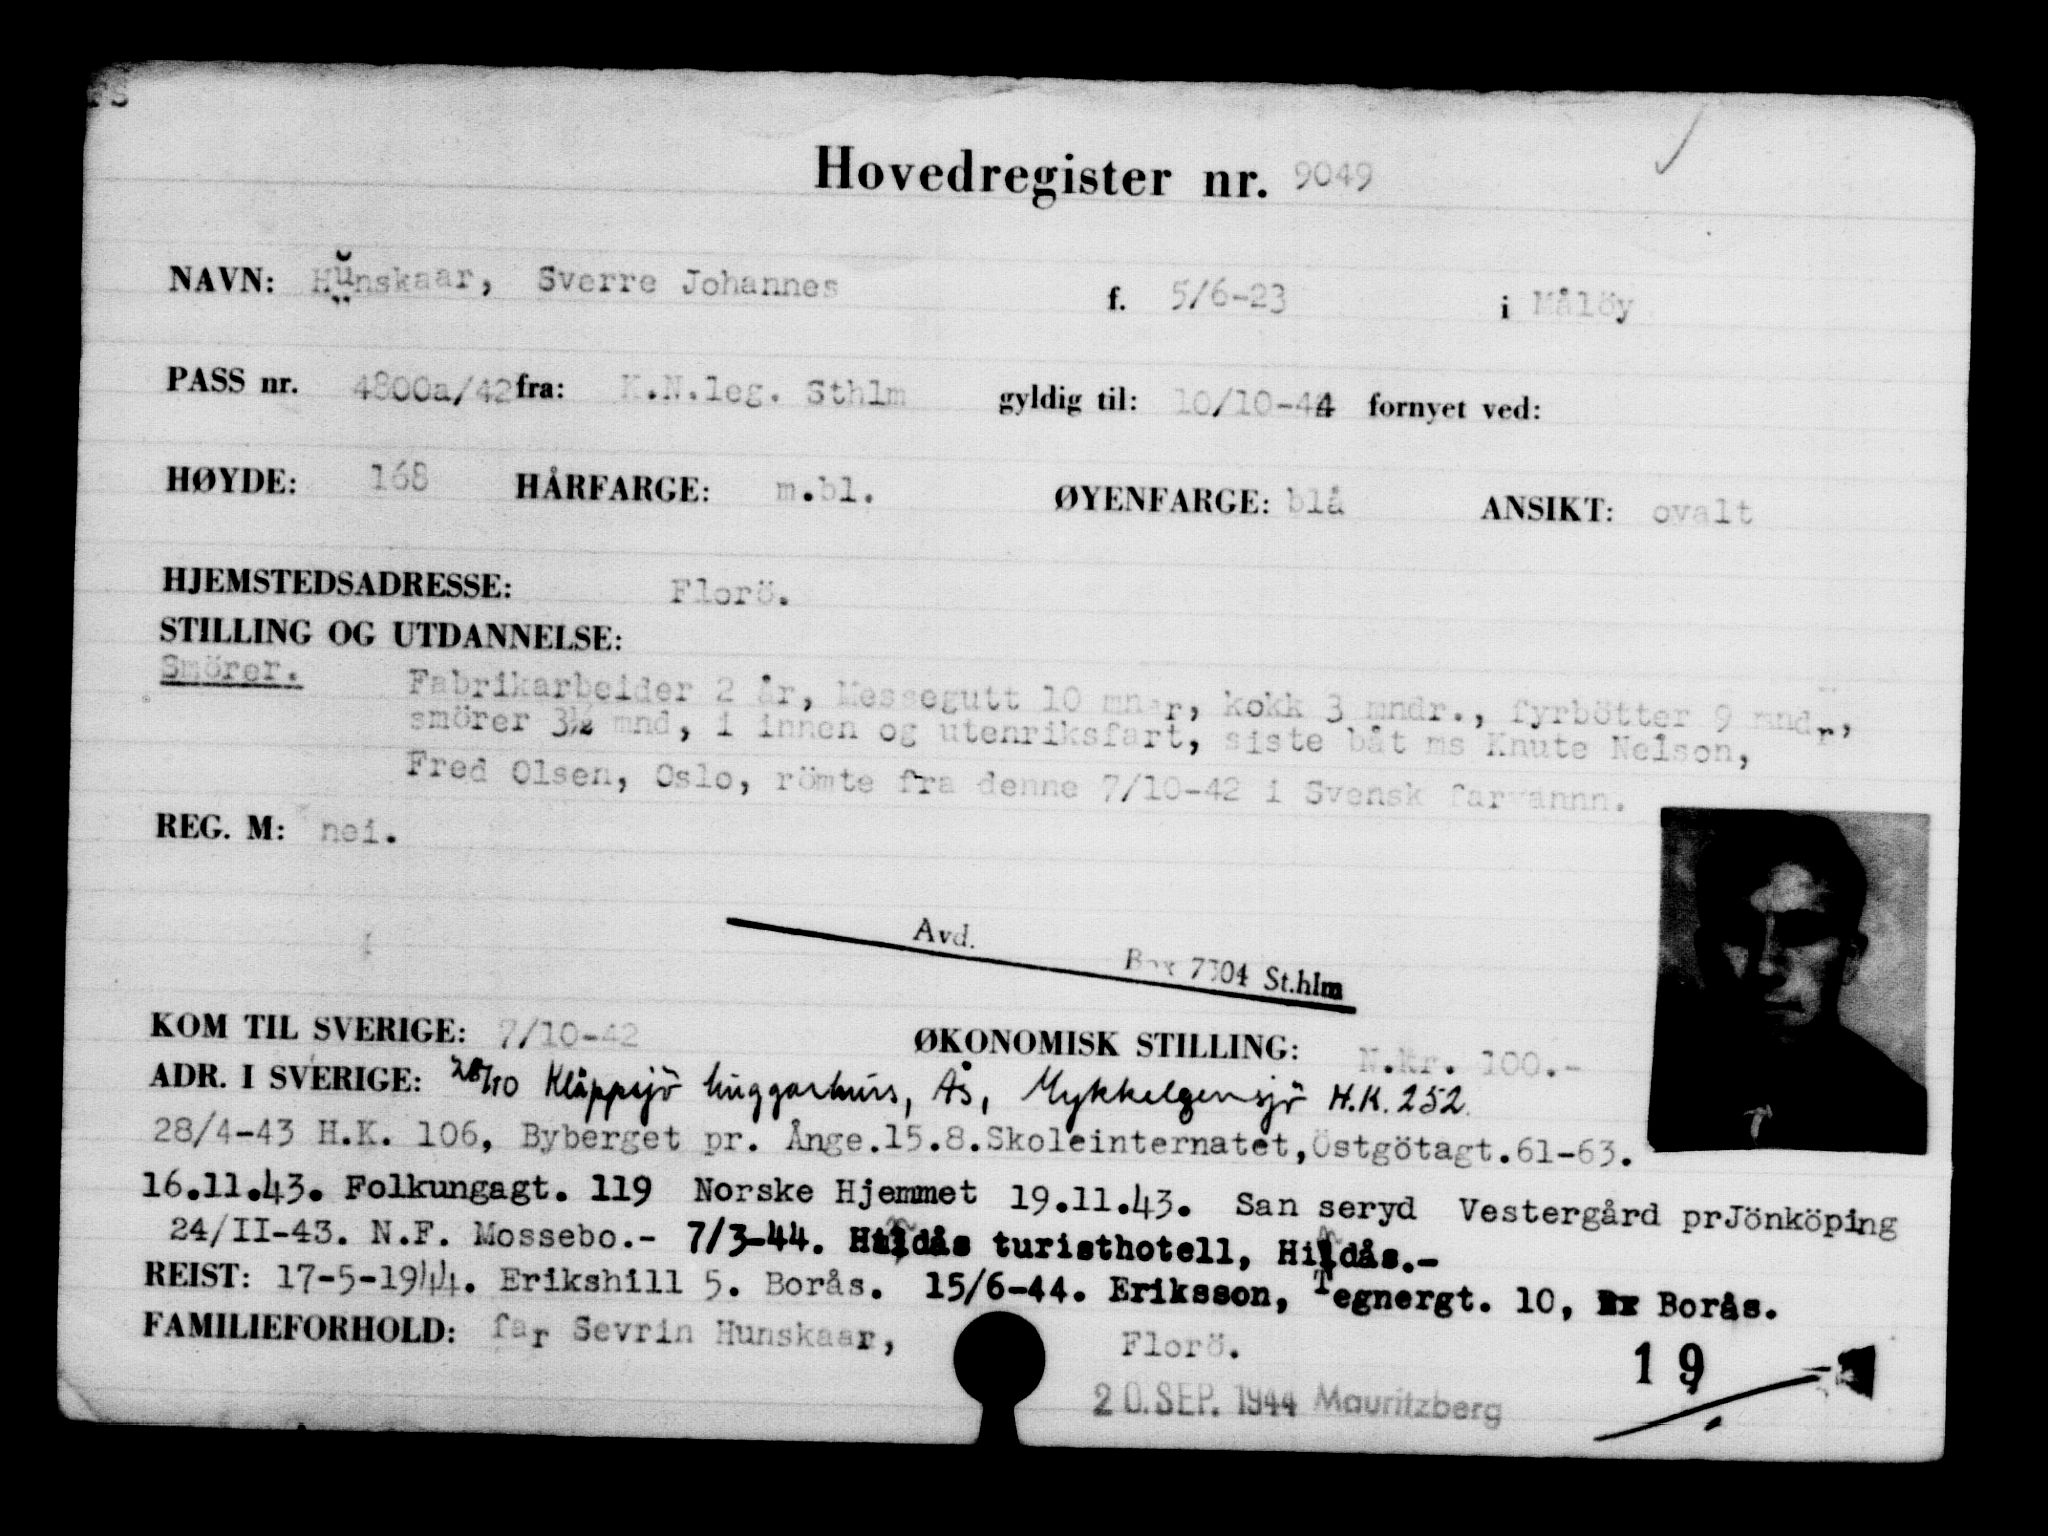 FS
Hovedregister nr. 9049
NAVN: Hunskaar, Sverre Johannes f. 5/6-23 i Målöy
PASS nr. 4800a/42 fra: K.N.leg. Sthlm gyldig til: 10/10-44 fornyet ved:
HØYDE: 168 HÅRFARGE: m.bl. ØYENFARGE: blå ANSIKT: ovalt
HJEMSTEDSADRESSE: Florö.
STILLING OG UTDANNELSE:
Smörer. Fabrikarbeider 2 år, Messegutt 10 mnar, kokk 3 mndr., fyrbötter 9 mndr,
smörer 3½ mnd, i innen og utenriksfart, siste båt ms Knute Nelson,
Fred Olsen, Oslo, römte fra denne 7/10-42 i Svensk farvannn.
REG. M: nei.
Avd. Box 7304 St.hlm
KOM TIL SVERIGE: 7/10-42 ØKONOMISK STILLING: N.Kr. 100.-
ADR. I SVERIGE: 28/10 Kläppsjö huggarhus, Ås, Mykkelgensjö H.K. 252.
28/4-43 H.K. 106, Byberget pr. Ånge.15.8.Skoleinternatet,Östgötagt.61-63.
16.11.43. Folkungagt. 119 Norske Hjemmet 19.11.43. San seryd Vestergård prJönköping
24/II-43. N.F. Mossebo.- 7/3-44. Hindås turisthotell, Hindås.-
REIST: 17-5-1944. Erikshill 5. Borås. 15/6-44. Eriksson, Tegnergt. 10, Borås.
FAMILIEFORHOLD: far Sevrin Hunskaar, Florö.
19
20. SEP. 1944 Mauritzberg